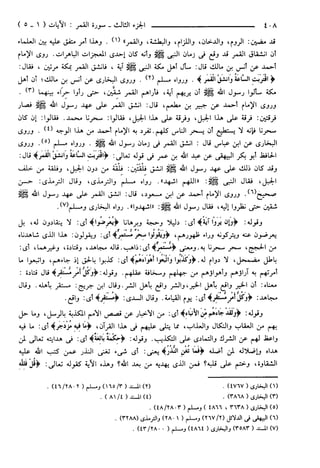 ٤٠٨ الجزء الثالث - سورة القمر: الآيات (١ - ٥)
قد مضين: الروم، والدخان، واللزام، والبطشة، والقمر» (١). وهذا أمر متفق عليه بين العلماء
أن انشقاق القمر قد وقع في زمان النبى ﷺ وأنه كان إحدى المعجزات الباهرات. روى الإمام
أحمد عن أنس بن مالك قال: سأل أهل مكة النبى ﷺ آية، فانشق القمر بمكة مرتين، فقال:
﴿اقْتَرَبَتِ السَّاعَةُ وَانشَقَّ الْقَمَرُ﴾. ورواه مسلم (٢). وروى البخارى عن أنس بن مالك؛ أن أهل
مكة سألوا رسول الله ﷺ أن يريهم آية، فأراهم القمر شقَّين، حتى رأوا حِرَاء بينهما (٣).
وروى الإمام أحمد عن جبير بن مطعم، قال: انشق القمر على عهد رسول الله ﷺ فصار
فرقتين: فرقة على هذا الجبل، وفرقة على هذا الجبل، فقالوا: سحرنا محمد. فقالوا: إن كان
سحرنا فإنه لا يستطيع أن يسحر الناس كلهم. تفرد به الإمام أحمد من هذا الوجه (٤). وروى
البخارى عن ابن عباس قال: انشق القمر فى زمان رسول الله ﷺ. ورواه مسلم (٥). وروى
الحافظ أبو بكر البيهقى عن عبد الله بن عمر فى قوله تعالى: ﴿اقْتَرَبَتِ السَّاعَةُ وَانشَقَّ الْقَمَرُ﴾ قال:
وقد كان ذلك على عهد رسول الله ﷺ انشق فِلْقَتَين: فِلْقَة من دون الجبل، وفلقة من خلف
الجبل، فقال النبى ﷺ: «اللهم اشهد». رواه مسلم والترمذى، وقال الترمذى: حسن
صحيح (٦). وروى الإمام أحمد عن ابن مسعود، قال: انشق القمر على عهد رسول الله ﷺ
شقين حتى نظروا إليه، فقال رسول الله ﷺ: «اشهدوا». رواه البخارى ومسلم (٧).
وقوله: ﴿وَإِن يَرَوْا آيَةً﴾ أى: دليلا وحجة وبرهانا ﴿يُعْرِضُوا﴾ أى: لا ينقادون له، بل
يعرضون عنه ويتركونه وراء ظهورهم، ﴿وَيَقُولُوا سِحْرٌ مُّسْتَمِرٌّ﴾ أى: ويقولون: هذا الذى شاهدناه
من الحجج، سحر سحرنا به. ومعنى ﴿مُّسْتَمِرٌّ﴾ أى: ذاهب. قاله مجاهد، وقتادة، وغيرهما، أى:
باطل مضمحل، لا دوام له. ﴿وَكَذَّبُوا وَاتَّبَعُوا أَهْوَاءَهُمْ﴾ أى: كذبوا بالحق إذ جاءهم، واتبعوا ما
أمرتهم به آراؤهم وأهواؤهم من جهلهم وسخافة عقلهم. وقوله: ﴿وَكُلُّ أَمْرٍ مُّسْتَقِرٌّ﴾ قال قتادة:
معناه: أن الخير واقع بأهل الخير، والشر واقع بأهل الشر. وقال ابن جريج: مستقر بأهله. وقال
مجاهد: ﴿وَكُلُّ أَمْرٍ مُّسْتَقِرٌّ﴾ أى: يوم القيامة. وقال السدى: ﴿مُّسْتَقِرٌّ﴾ أى: واقع.
وقوله: ﴿وَلَقَدْ جَاءَهُم مِّنَ الْأَنبَاءِ﴾ أى: من الأخبار عن قصص الأمم المكذبة بالرسل، وما حل
بهم من العقاب والنكال والعذاب، مما يتلى عليهم فى هذا القرآن، ﴿مَا فِيهِ مُزْدَجَرٌ﴾ أى: ما فيه
واعظ لهم عن الشرك والتمادى على التكذيب. وقوله: ﴿حِكْمَةٌ بَالِغَةٌ﴾ أى: فى هدايته تعالى لمن
هداه وإضلاله لمن أضله ﴿فَمَا تُغْنِ النُّذُرُ﴾ يعنى: أى شىء تغنى النذر عمن كتب الله عليه
الشقاوة، وختم على قلبه؟ فمن الذى يهديه من بعد الله؟ وهذه الآية كقوله تعالى: ﴿قُلْ فَلِلَّهِ
(١) البخارى (٤٧٦٧). (٢) المسند (٣/ ١٦٥) ومسلم (٢٨٠٢/ ٤٦).
(٣) البخارى (٣٨٦٨). (٤) المسند (٤/ ٨١).
(٥) البخارى (٣٦٣٨، ٤٨٦٦) ومسلم (٢٨٠٣/ ٤٨).
(٦) البيهقى فى الدلائل (٢/ ٢٦٧) ومسلم (٢٨٠١) والترمذى (٣٢٨٨).
(٧) المسند (٣٥٨٣) والبخارى (٤٨٦٤) ومسلم (٢٨٠٠/ ٤٣).